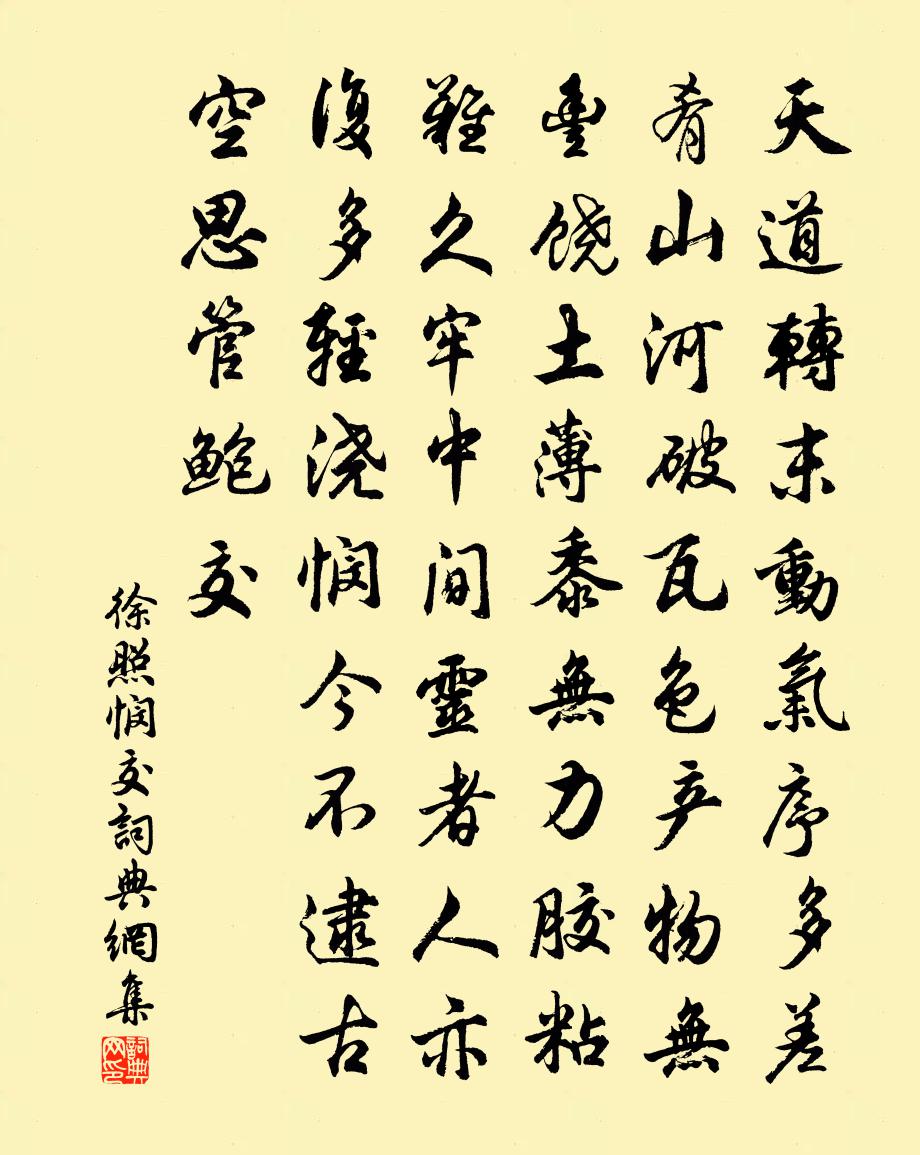 天道轉末動氣序多差
肴山河破瓦色产物無
豊饶土薄黍無力胶粘
難久牢中间靈者人亦
復多輕浇悯今不逮古
空思管鲍交
徐照悯交詞典網集
詞典网印